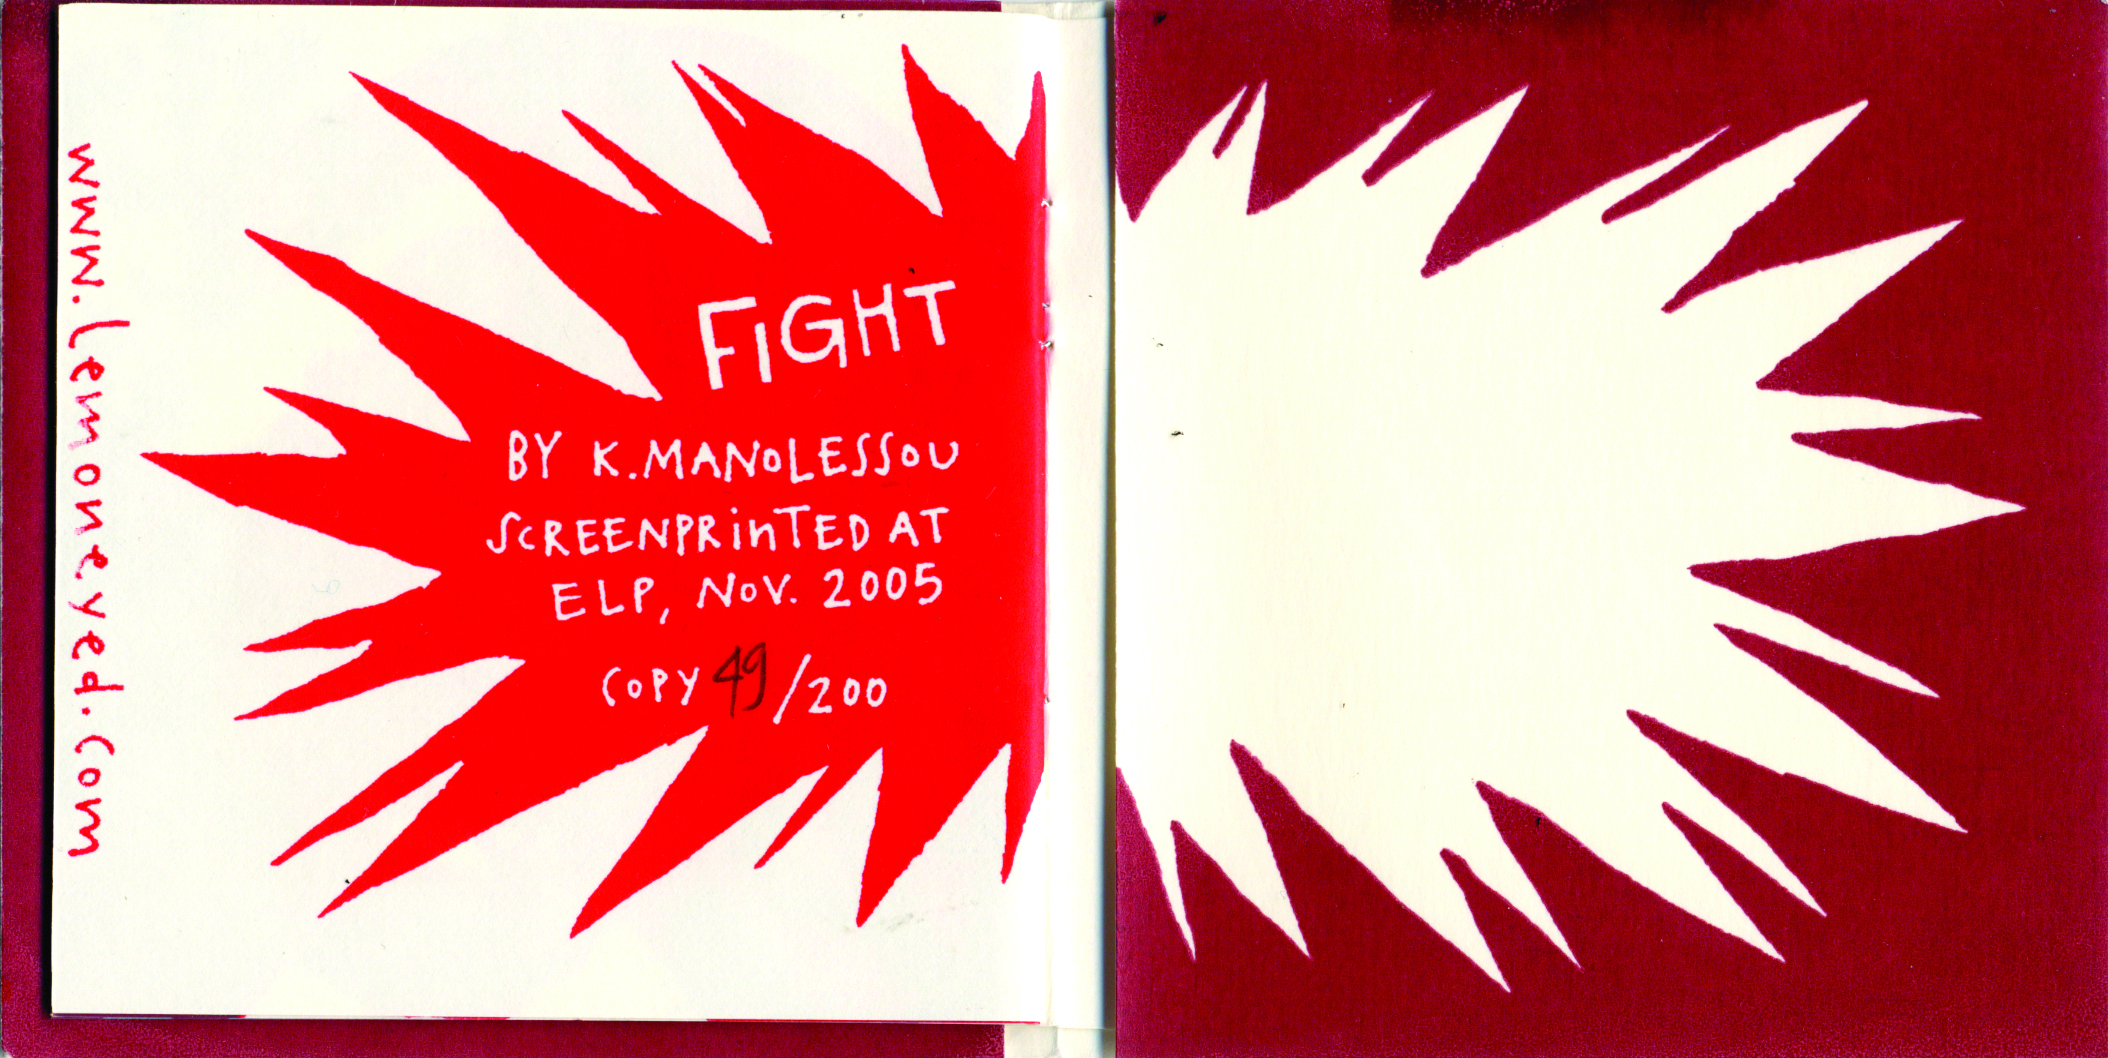 www.lemoneyed.com
FiGHT
BY K.MANoLESSOU
SCREENPRinTED AT
ELP, NoV. 2005
COPY 49/200